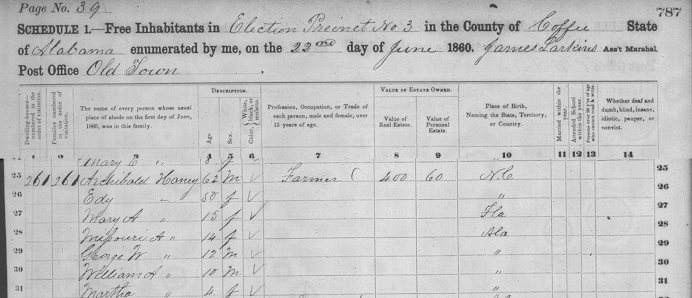 Page No. 39
787
SCHEDULE 1.—Free Inhabitants in Election Precinct No 3 in the County of Coffee State
of Alabama enumerated by me, on the 22nd day of June 1860. James Larkins Ass't Marshal
Post Office Old Town.
Dwelling-houses—numbered in the order of visitation.
Families numbered in the order of visitation.
The name of every person whose usual place of abode on the first day of June, 1860, was in this family.
DESCRIPTION.
Age. Sex. White, Color, black, or mulatto.
Profession, Occupation, or Trade of each person, male and female, over 15 years of age.
VALUE OF ESTATE OWNED.
Value of Real Estate. Value of Personal Estate.
Place of Birth, Naming the State, Territory, or Country.
Married within the year. Attended School within the year.
Whether deaf and dumb, blind, insane, idiotic, pauper, or convict.
1 2 3 4 5 6 7 8 9 10 11 12 13 14
Mary E " f
25 261 261 Archibald Haney 62 M Farmer 400 60 N.C 25
26 Edy " 50 f " 26
27 Mary A " 15 f Fla 27
28 Missouri A " 14 f Ala 28
29 George W " 12 M " 29
30 William A " 10 M " 30
31 Martha " 4 f " 31